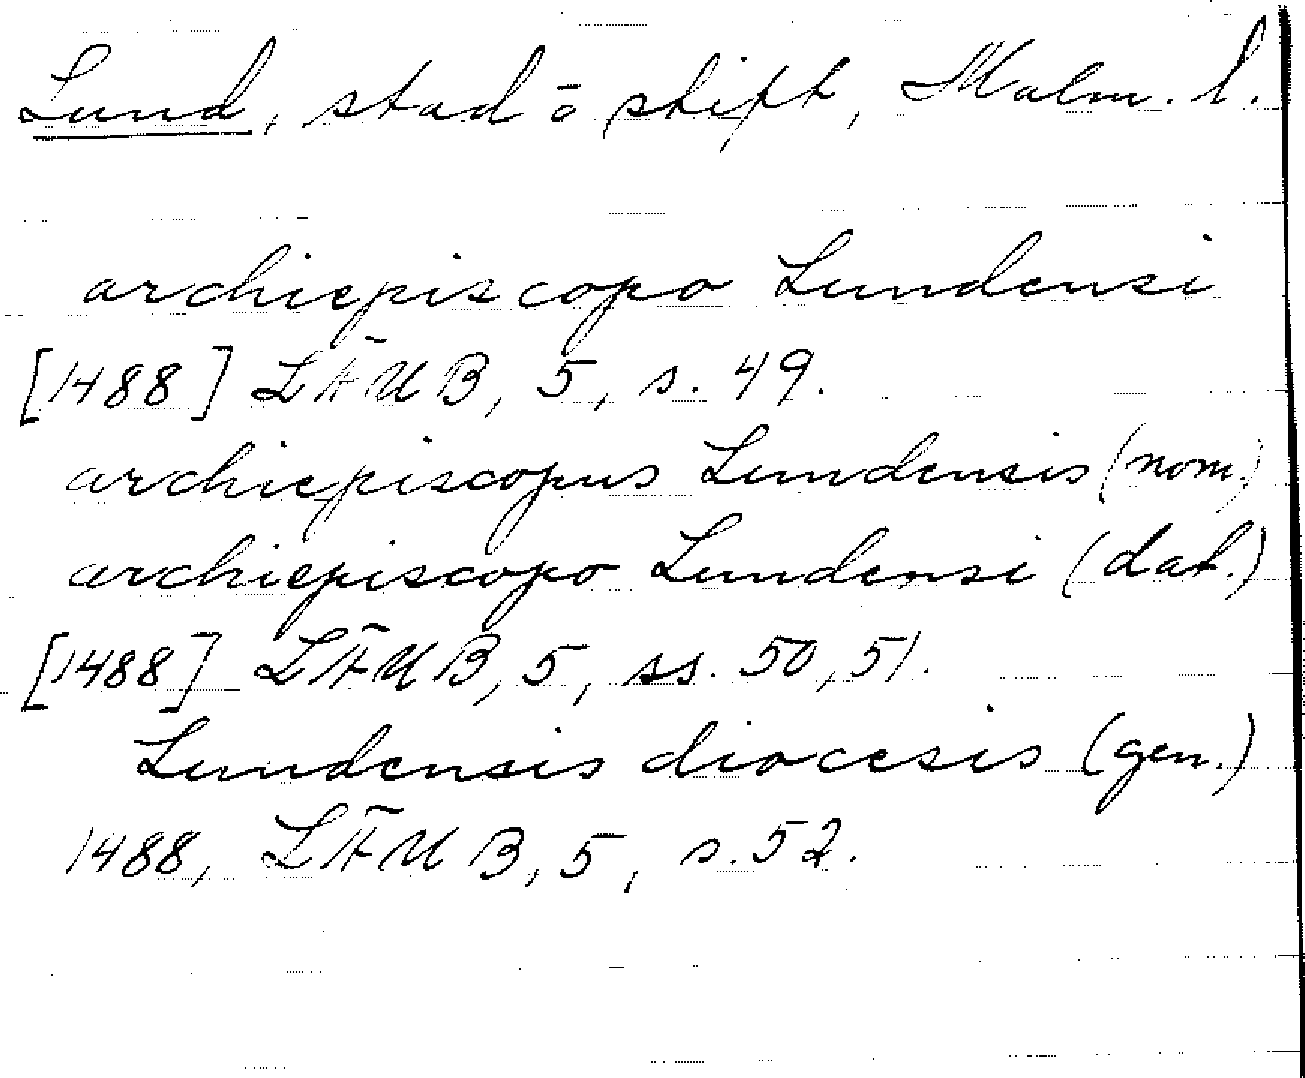 Lund, stad ō stift, Malm. l.
archiepiscopo Lundensi
[1488] LÄUB, 5, s. 49.
archiepiscopus Lundensis (nom.)
archiepiscopo Lundensi (dat.)
[1488] LÄUB, 5, ss. 50, 51.
Lundensis diocesis (gen.)
1488, LÄUB, 5, s. 52.